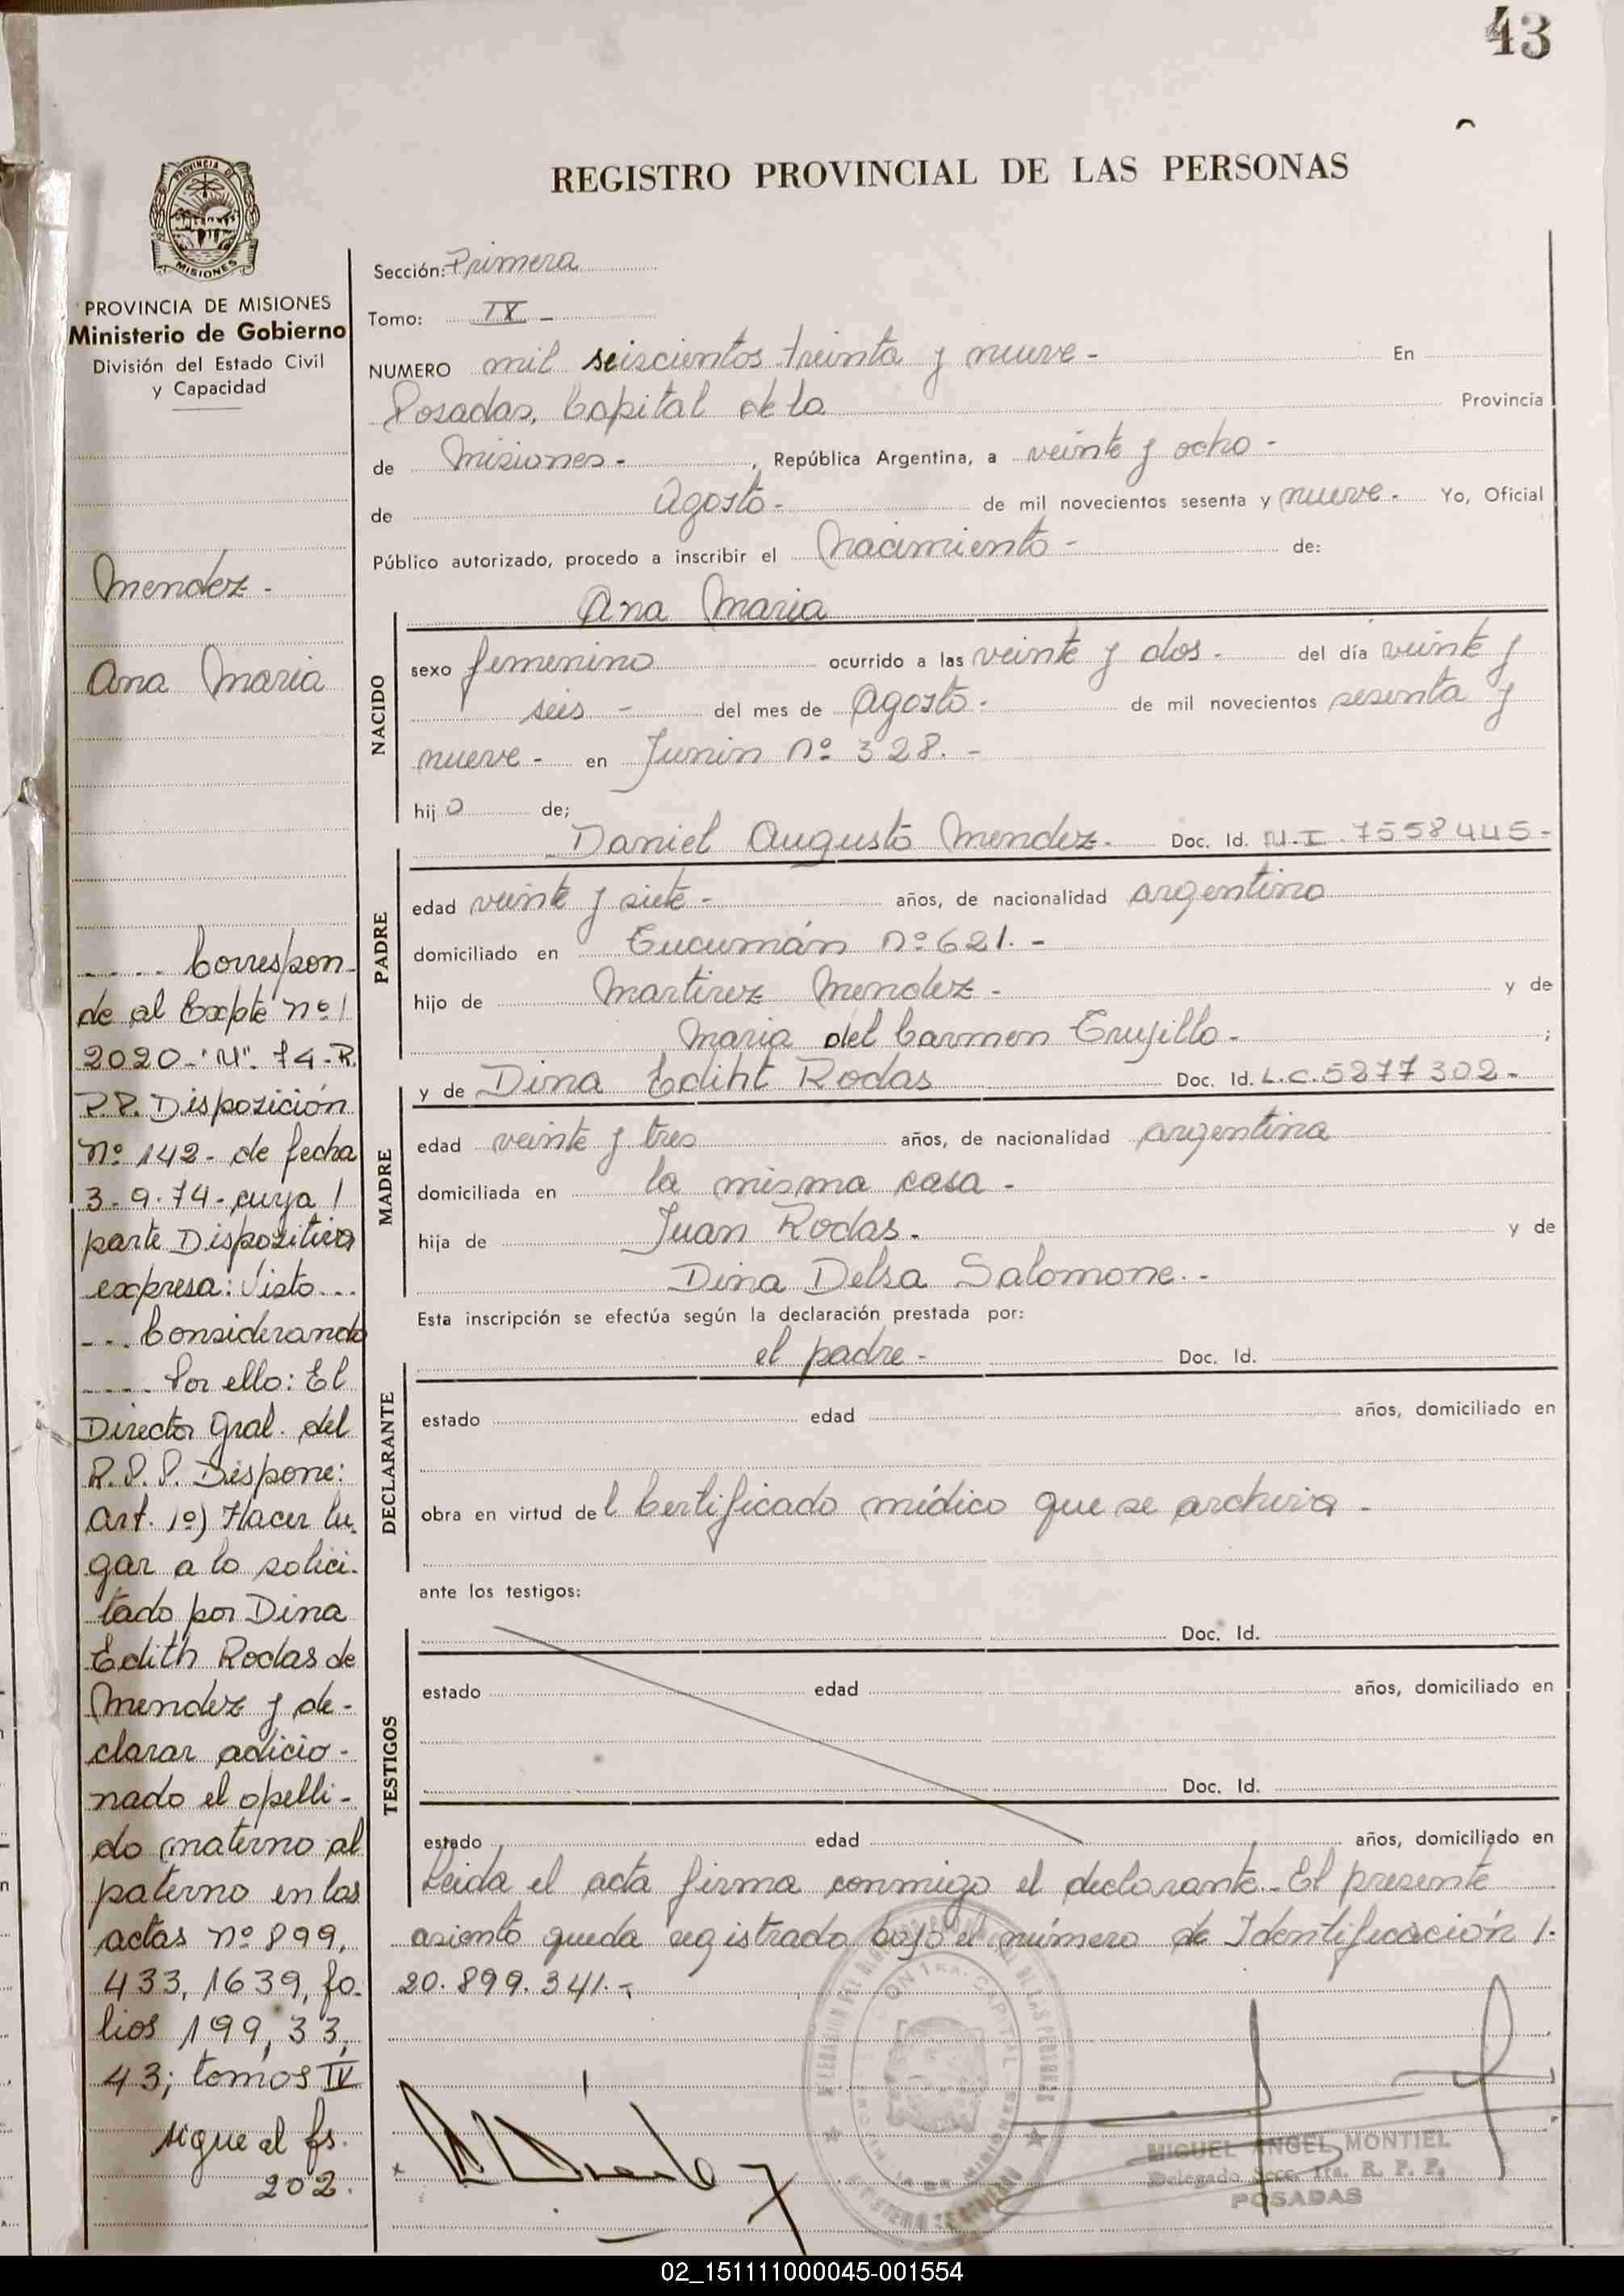 43
REGISTRO PROVINCIAL DE LAS PERSONAS
PROVINCIA DE MISIONES
Ministerio de Gobierno
División del Estado Civil
y Capacidad
Mendez -
Ana Maria
.... Correspon-
de al Expte nº /
2020-"M". 74-R.
P.P. Disposición
nº 142- de fecha
3-9-74- cuya /
parte Dispositiva
expresa: Visto...
... Considerando
.... Por ello: El
Director Gral. del
R.P.P. Dispone:
Art. 1º) Hacer lu-
gar a lo solici-
tado por Dina
Edith Rodas de
Mendez y de-
clarar adicio-
nado el apelli-
do materno al
paterno en las
actas nº 899,
433, 1639, fo-
lios 199, 33,
43; tomos IV
sigue al fs.
202.
Sección: Primera
Tomo: IX -
NUMERO mil seiscientos treinta y nueve - En
Posadas, Capital de la Provincia
de Misiones - , República Argentina, a veinte y ocho -
de Agosto - de mil novecientos sesenta y nueve - Yo, Oficial
Público autorizado, procedo a inscribir el Nacimiento - de:
Ana Maria
NACIDO
sexo femenino ocurrido a las veinte y dos - del día veinte y
seis - del mes de Agosto - de mil novecientos sesenta y
nueve - en Junin nº 328. -
hij o de;
Daniel Augusto Mendez. Doc. Id. M.I. 7558445-
PADRE
edad veinte y siete - años, de nacionalidad argentino
domiciliado en Tucumán nº 621. -
hijo de Martirez Mendez - y de
Maria del Carmen Trujillo - ;
y de Dina Ediht Rodas Doc. Id. L.C. 5277302-
MADRE
edad veinte y tres años, de nacionalidad argentina
domiciliada en la misma casa -
hija de Juan Rodas. y de
Dina Delsa Salomone. -
Esta inscripción se efectúa según la declaración prestada por:
el padre - Doc. Id.
DECLARANTE
estado edad años, domiciliado en
obra en virtud de l Certificado médico que se archiva -
ante los testigos:
Doc. Id.
TESTIGOS
estado edad años, domiciliado en
Doc. Id.
estado edad años, domiciliado en
Leida el acta firma conmigo el declarante. El presente
asiento queda registrado bajo el número de Identificación /.
20.899.341.-
MIGUEL ANGEL MONTIEL
Delegado Secc. 1ra. R. P. P.
POSADAS
02_151111000045-001554